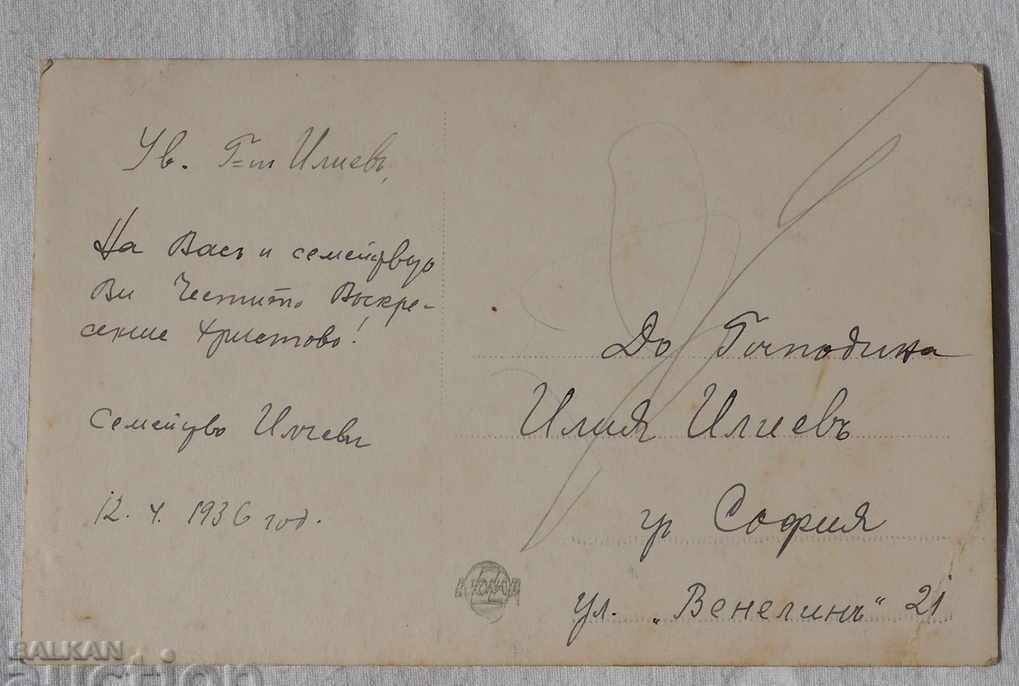 Ув. Г-ш Илиевъ,
На Васъ и семейство
Ви Честито Воскре-
сение Христово!
Семейство Илчеви
12. 4. 1936 год.
До Господина
Илия Илиевъ
гр София
ул. „Венелинъ" 21
BALKAN
auction